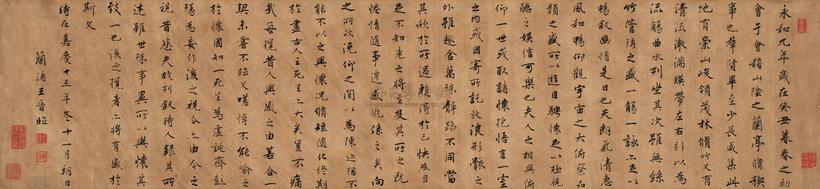 永和九年歲在癸丑暮春之初
會于會稽山陰之蘭亭脩稧
事也羣賢畢至少長咸集此
地有崇山峻領茂林脩竹又有
清流激湍暎帶左右引以為
流觴曲水列坐其次雖無絲
竹管弦之盛一觴一詠亦足以
暢敘幽情是日也天朗氣清惠
風和暢仰觀宇宙之大俯察品
類之盛所以遊目騁懷足以極視
聽之娛信可樂也夫人之相與俯
仰一世或取諸懷抱悟言一室
之內或因寄所託放浪形骸之
外雖趣舍萬殊靜躁不同當
其欣於所遇蹔得於己怏然自
足不知老之將至及其所之既
惓情隨事遷感慨係之矣向
之所欣俛仰之間以為陳迹猶不
能不以之興懷況脩短隨化終期
於盡古人云死生亦大矣豈不痛
哉每攬昔人興感之由若合一
契未嘗不臨文嗟悼不能喻之
於懷固知一死生為虛誕齊彭
殤為妄作後之視今亦由今之
視昔悲夫故列敘時人錄其所
述雖世殊事異所以興懷其
致一也後之攬者亦將有感於
斯文
時在嘉慶十五年冬十一月朔日
蘭渚王晉